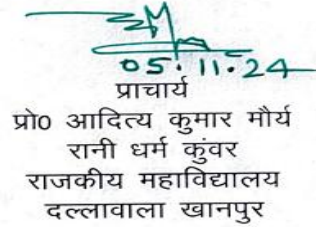 05.11.24
प्राचार्य
प्रो0 आदित्य कुमार मौर्य
रानी धर्म कुंवर
राजकीय महाविद्यालय
दल्लावाला खानपुर